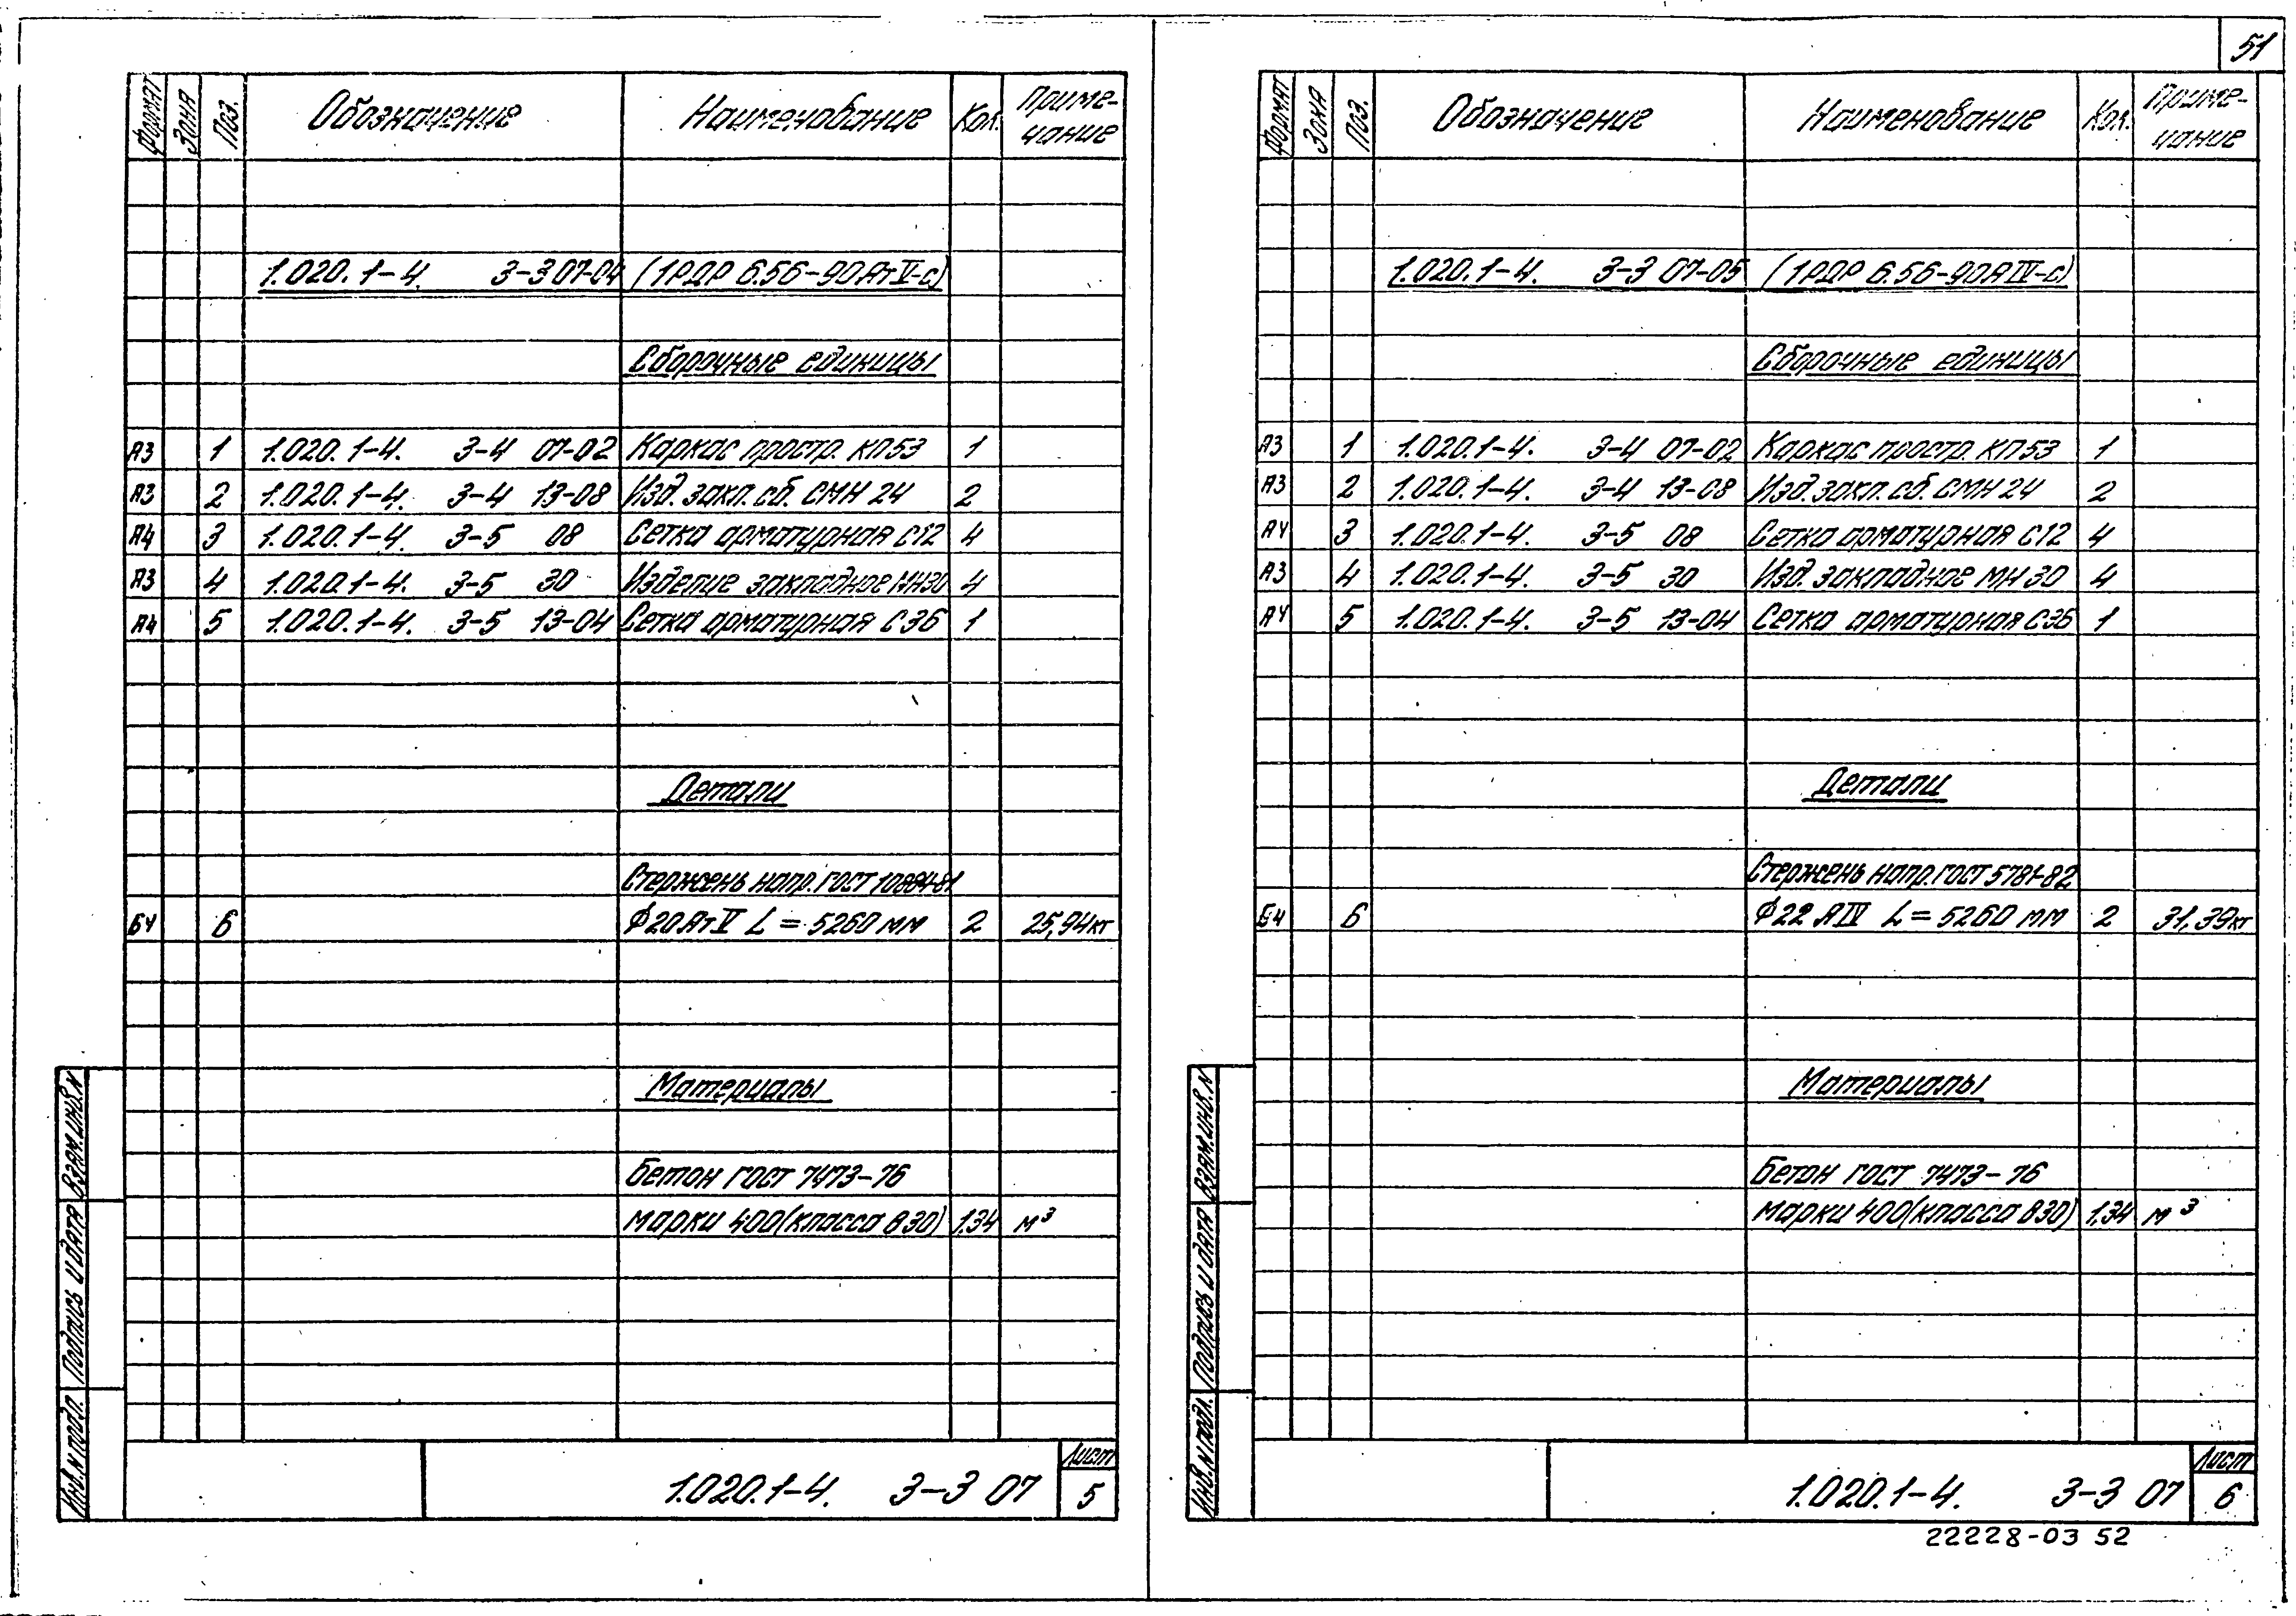 51
Формат Зона Поз. Обозначение Наименование Кол. Приме-
чание
1.020.1-4. 3-3 07-04 (1РДР 6.56-90АтV-с)
Сборочные единицы
А3 1 1.020.1-4. 3-4 07-02 Каркас простр. КП53 1
А3 2 1.020.1-4. 3-4 13-08 Изд. закл. сб. СМН 24 2
А4 3 1.020.1-4. 3-5 08 Сетка арматурная С12 4
А3 4 1.020.1-4. 3-5 30 Изделие закладное МН30 4
А4 5 1.020.1-4. 3-5 13-04 Сетка арматурная С36 1
Детали
Стержень напр. ГОСТ 10884-81
БЧ 6 Ф20АтV L = 5260 мм 2 25,94кг
Материалы
Бетон ГОСТ 7473-76
марки 400(класса В30) 1.34 м³
Инв. N подл. Подпись и дата Взам. инв. N
1.020.1-4. 3-3 07
Лист
5
Формат Зона Поз. Обозначение Наименование Кол. Приме-
чание
1.020.1-4. 3-3 07-05 (1РДР 6.56-90АIV-с)
Сборочные единицы
А3 1 1.020.1-4. 3-4 07-02 Каркас простр. КП53 1
А3 2 1.020.1-4. 3-4 13-08 Изд. закл. сб. СМН 24 2
А4 3 1.020.1-4. 3-5 08 Сетка арматурная С12 4
А3 4 1.020.1-4. 3-5 30 Изд. закладное МН 30 4
А4 5 1.020.1-4. 3-5 13-04 Сетка арматурная С36 1
Детали
Стержень напр. ГОСТ 5781-82
БЧ 6 Ф22 АIV L = 5260 мм 2 31,39кг
Материалы
Бетон ГОСТ 7473-76
марки 400(класса В30) 1.34 м³
Инв. N подл. Подпись и дата Взам. инв. N
1.020.1-4. 3-3 07
Лист
6
22228-03 52